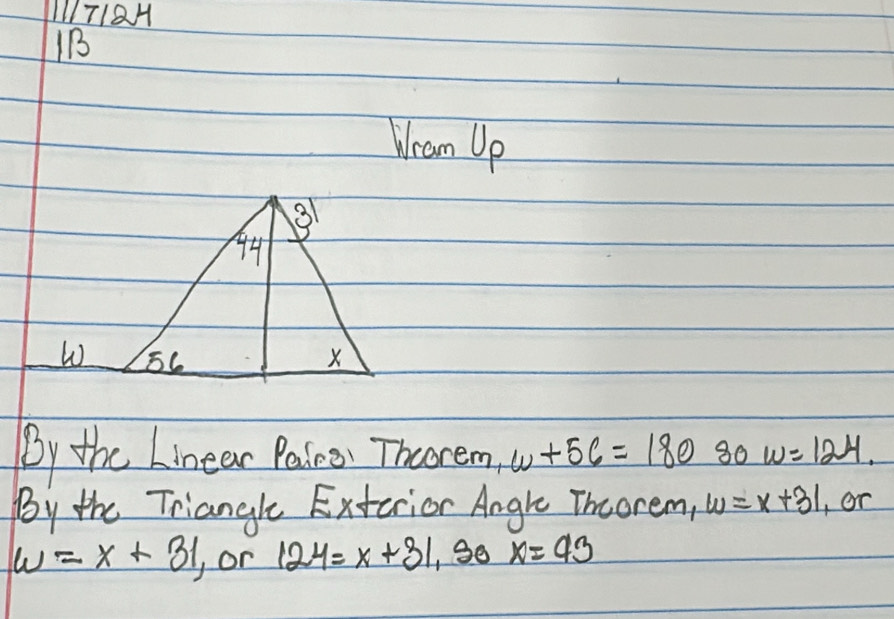 11/7/24
1B
Wram Up
31
44
W
56
x
By the Linear Pairs Theorem, w+56=180 so w=124.
By the Triangle Exterior Angle Theorem, w=x+31, or
w=x+31, or 124=x+31, so x=93